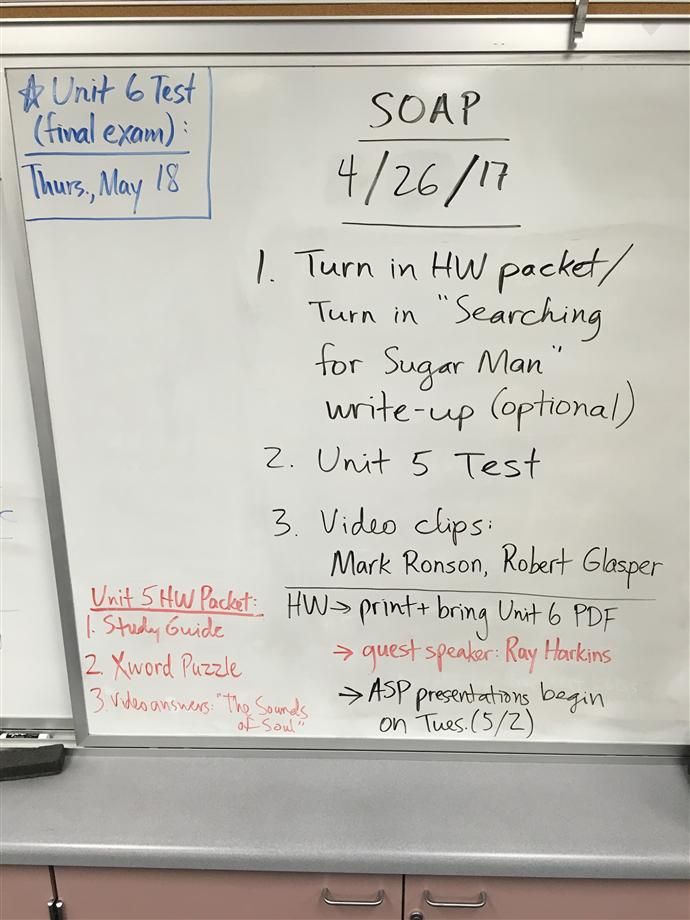 ☆ Unit 6 Test
(final exam):
Thurs., May 18
SOAP
4/26/17
1. Turn in HW packet/
Turn in "Searching
for Sugar Man"
write-up (optional)
2. Unit 5 Test
3. Video clips:
Mark Ronson, Robert Glasper
HW→ print + bring Unit 6 PDF
→ guest speaker: Ray Harkins
→ ASP presentations begin
on Tues. (5/2)
Unit 5 HW Packet:
1. Study Guide
2. Xword Puzzle
3. Video answers: "The Sounds
of Soul"